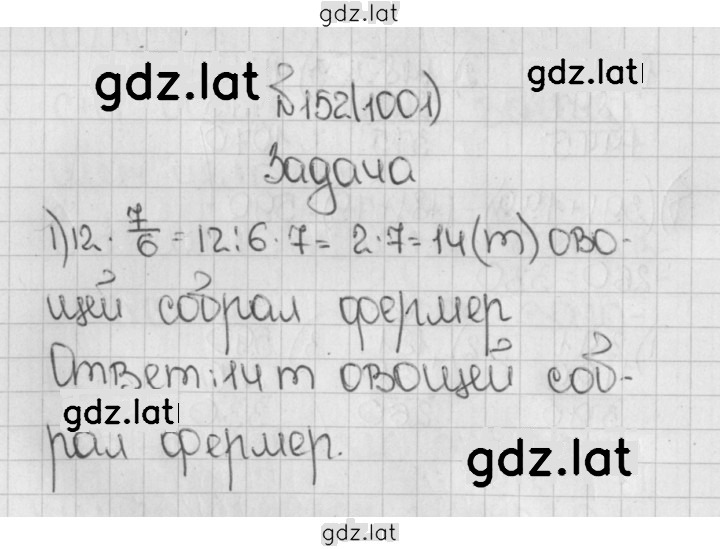 gdz.lat
gdz.lat
gdz.lat
№152(1001)
Задача
1) 12 · 7/6 = 12:6·7 = 2·7 = 14 (т) ово-
щей собрал фермер
Ответ: 14 т овощей соб-
gdz.lat
рал фермер.
gdz.lat
gdz.lat